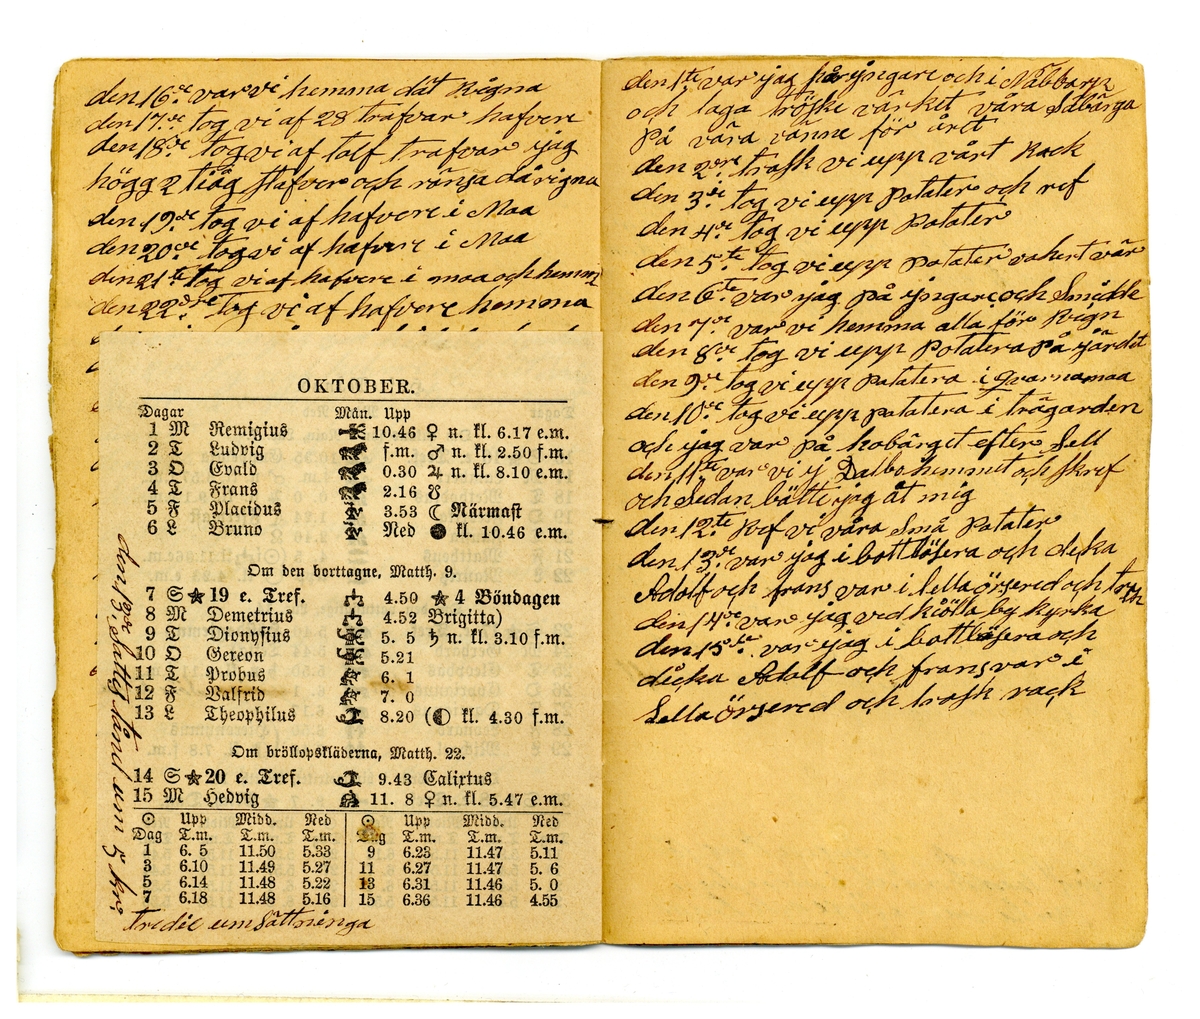 den 16de var vi hemma dät Rigna
den 17de tog vi af 28 trafvar hafvere
den 18de tog vi af tolf trafvar ijag
högg 2 tiåg stafver och rönsa då rigna
den 19de tog vi af hafvere i Maa
den 20de tog vi af hafvere i Maa
den 21te tog vi af hafvere i maa och hemma
den 22dre tog vi af hafvere hemma
OKTOBER.
Dagar Mån. Upp
1 M Remigius 10.46 ♀ n. kl. 6.17 e.m.
2 T Ludvig f.m. ♂ n. kl. 2.50 f.m.
3 O Evald 0.30 ♃ n. kl. 8.10 e.m.
4 T Frans 2.16 ☋
5 F Placidus 3.53 ☾ Närmast
6 L Bruno Ned ● kl. 10.46 e.m.
Om den borttagne, Matth. 9.
7 S ★ 19 e. Tref. 4.50 ★ 4 Böndagen
8 M Demetrius 4.52 Brigitta)
9 T Dionysius 5. 5 ♄ n. kl. 3.10 f.m.
10 O Gereon 5.21
11 T Probus 6. 1
12 F Valfrid 7. 0
13 L Theophilus 8.20 (◐ kl. 4.30 f.m.
Om bröllopskläderna, Matth. 22.
14 S ★ 20 e. Tref. 9.43 Calixtus
15 M Hedvig 11. 8 ♀ n. kl. 5.47 e.m.
☉ Upp Midd. Ned ☉ Upp Midd. Ned
Dag T.m. T.m. T.m. Dag T.m. T.m. T.m.
1 6. 5 11.50 5.33 9 6.23 11.47 5.11
3 6.10 11.49 5.27 11 6.27 11.47 5. 6
5 6.14 11.48 5.22 13 6.31 11.46 5. 0
7 6.18 11.48 5.16 15 6.36 11.46 4.55
tredie umsättninga
den 13de sattis sånd um 5 kr
den 1te var ijag på yngare och i Nabbarp
och laga tröske värket våra Såbärga
på våra vänne för året
den 2dre trosk vi upp vårt Rock
den 3de tog vi upp Potater och ref
den 4de tog vi upp Potater
den 5te tog vi upp Potater vakert vär
den 6te var ijag på yngare och Småkk
den 7de var vi hemma alla för Regn
den 8de tog vi upp Potatera på järdet
den 9de tog vi upp patatera i qvarnamaa
den 10de tog vi upp patatera i trägarden
och ijag var på hobärget efter Sell
den 11te var vi ij Dalbohemmet och skref
och Sedan bätte ijag åt mig
den 12te Ref vi våra små Potater
den 13de var ijag i bottlösera och deka
Adolf och frans var i lella örsered och trosk
den 14de var ijag ved kiölla by kyrka
den 15te var ijag i bottlösera och
dicka Adolf och frans var i
Lella örsered och trosk rack